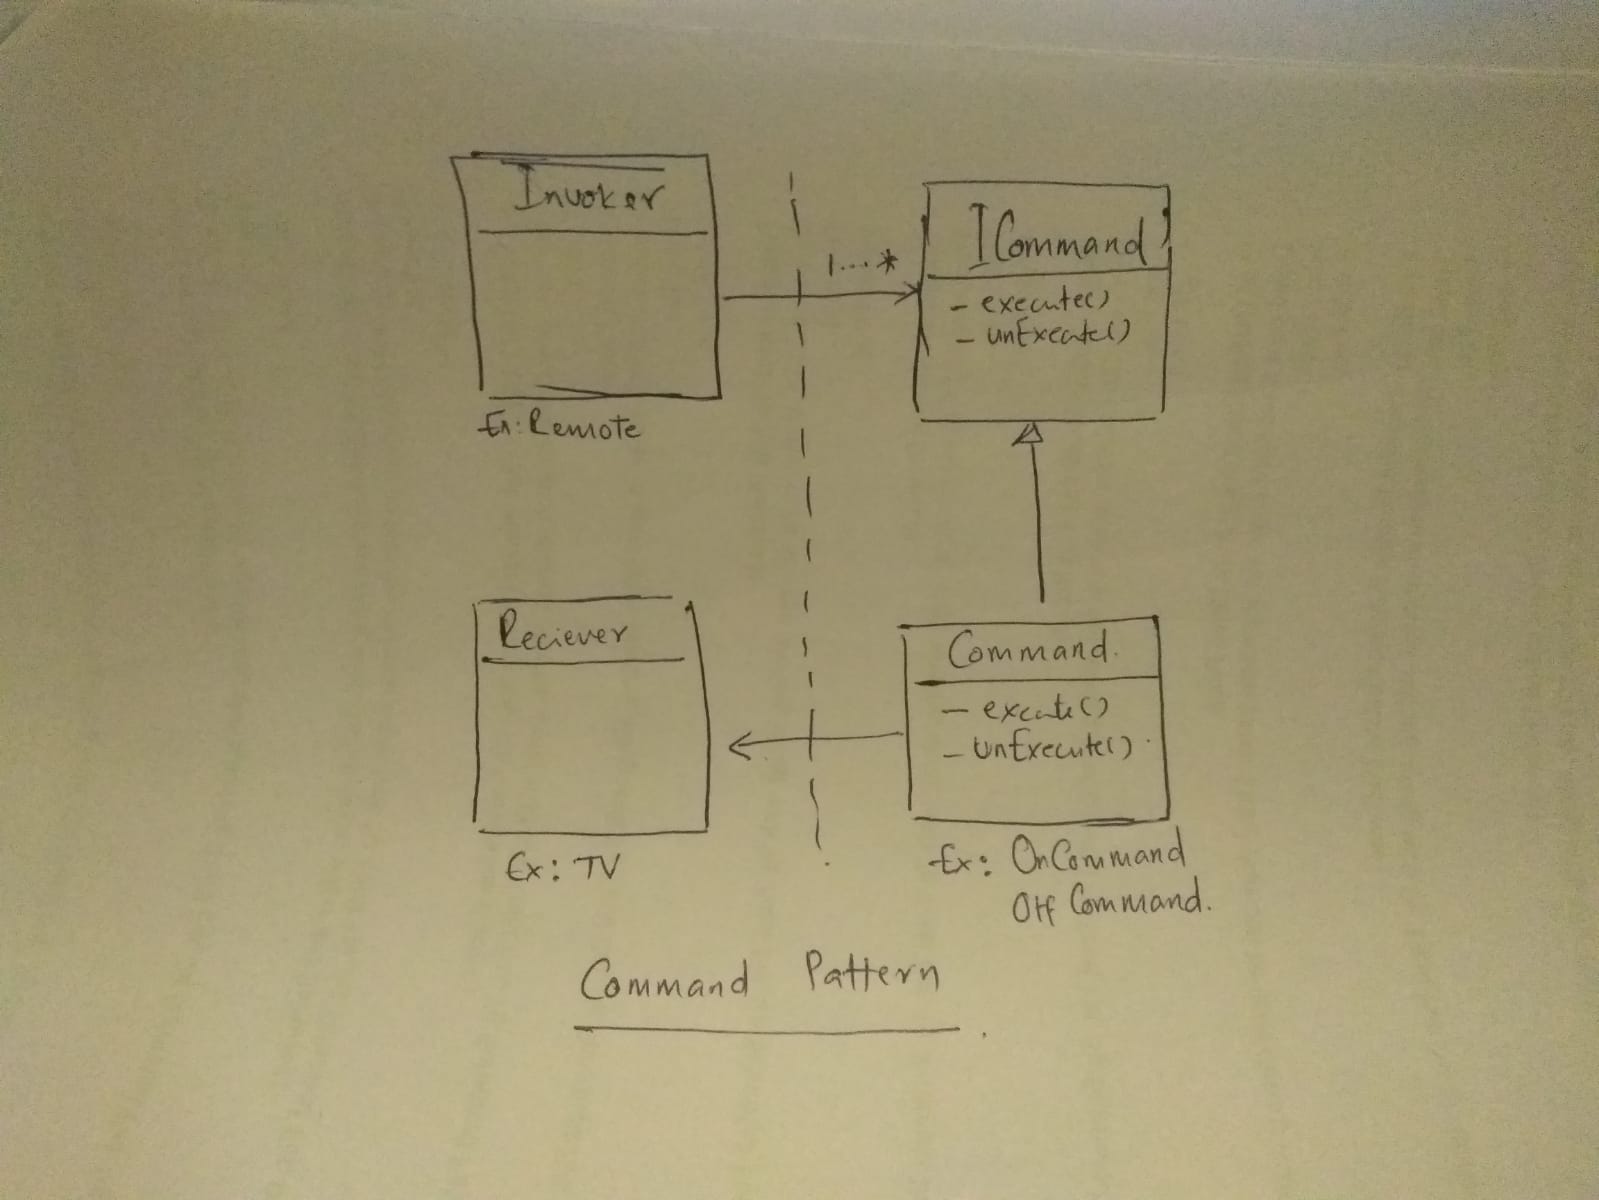 Invoker
Ex: Remote
1...*
ICommand
- execute()
- unExecute()
Reciever
Ex: TV
Command.
- execute()
- unExecute()
Ex: OnCommand
Off Command.
Command Pattern